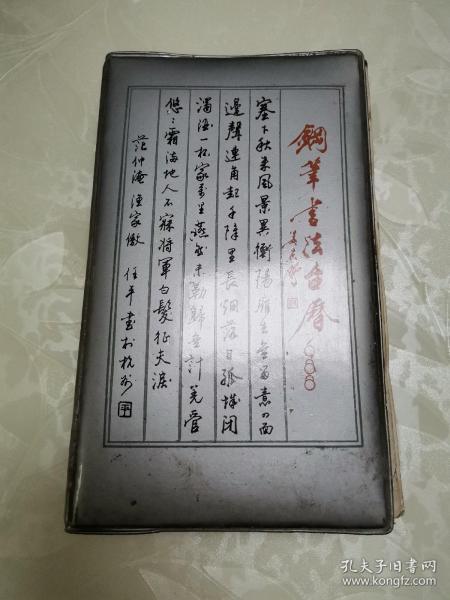 鋼筆書法台曆
塞下秋来風景異衡陽雁去無留意四面
邊聲連角起千障里長烟落日孤城閉
濁酒一杯家万里燕然未勒歸無計羌管
悠々霜满地人不寐将軍白髮征夫淚
范仲淹 漁家傲 任平書於杭州 平
孔夫子旧书网
www.kongfz.com